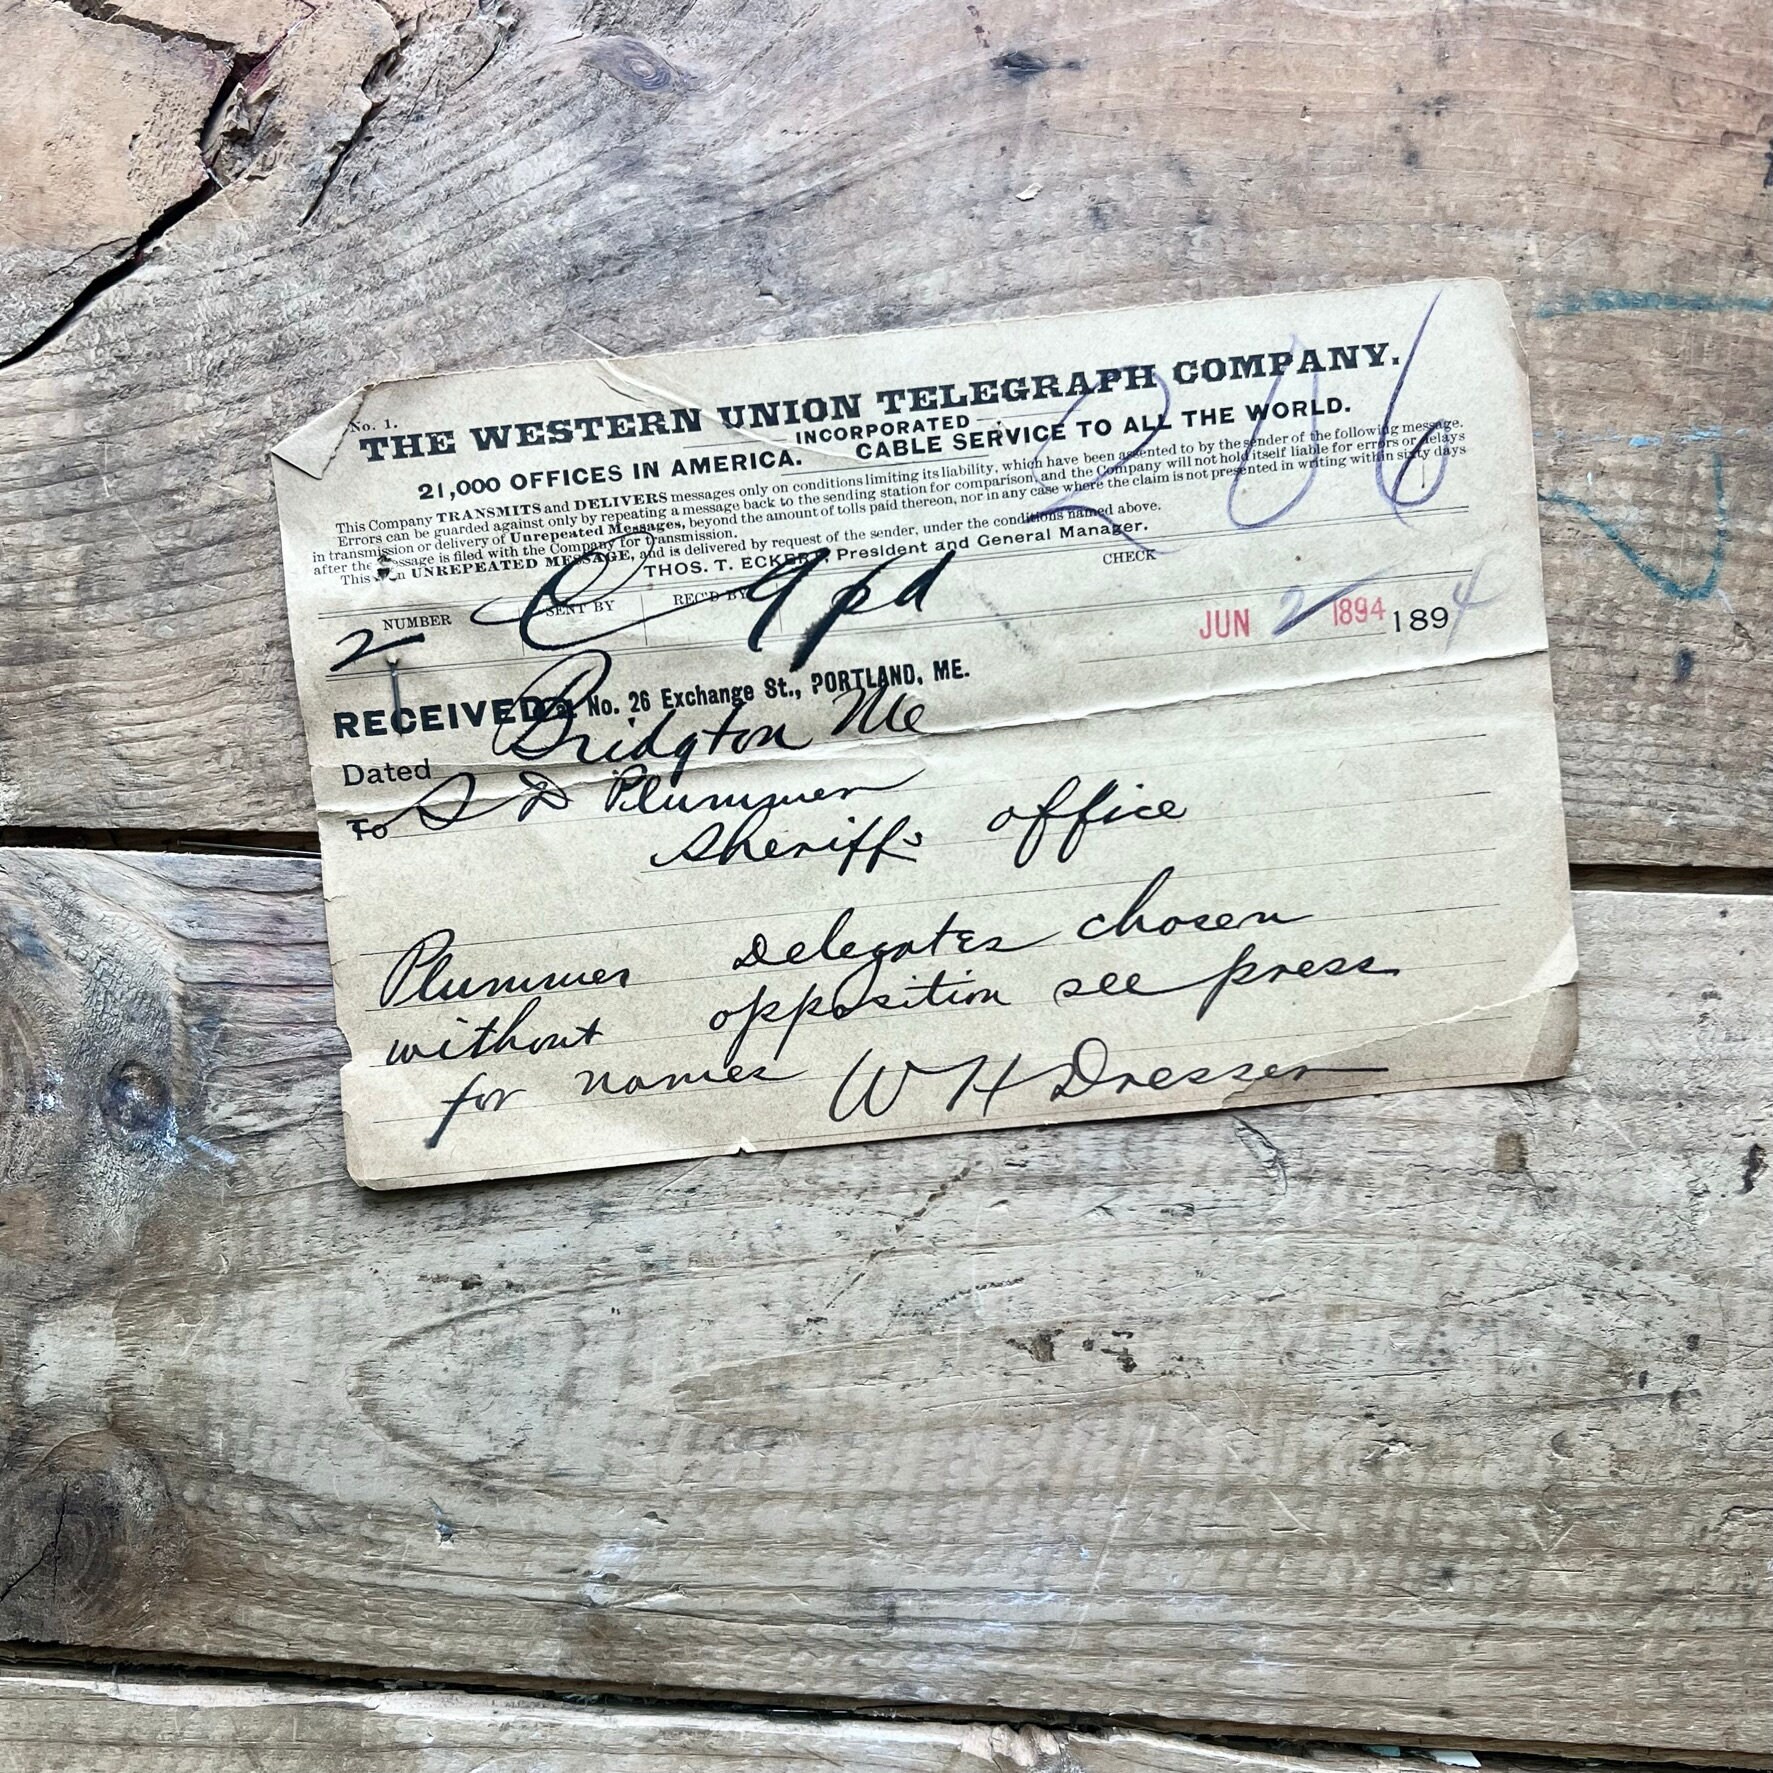 No. 1.
THE WESTERN UNION TELEGRAPH COMPANY.
INCORPORATED
21,000 OFFICES IN AMERICA. CABLE SERVICE TO ALL THE WORLD.
This Company TRANSMITS and DELIVERS messages only on conditions limiting its liability, which have been assented to by the sender of the following message.
Errors can be guarded against only by repeating a message back to the sending station for comparison, and the Company will not hold itself liable for errors or delays
in transmission or delivery of Unrepeated Messages, beyond the amount of tolls paid thereon, nor in any case where the claim is not presented in writing within sixty days
after the message is filed with the Company for transmission.
This is an UNREPEATED MESSAGE, and is delivered by request of the sender, under the conditions named above.
THOS. T. ECKERT, President and General Manager.
206
NUMBER SENT BY REC'D BY CHECK
2 9 pd
JUN 2 1894 1894
RECEIVED at No. 26 Exchange St., PORTLAND, ME.
Dated Bridgton Me
To S D Plummer
Sheriffs office
Plummer Delegates chosen
without opposition see press
for names W H Dresser